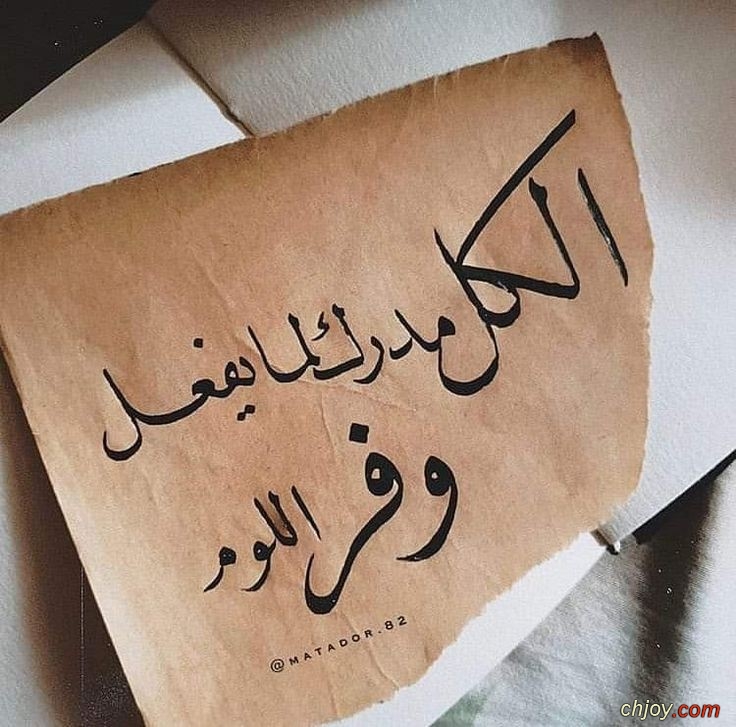 الكل مدرك لما يفعل
وفر اللوم
@MATADOR.82
chjoy.com